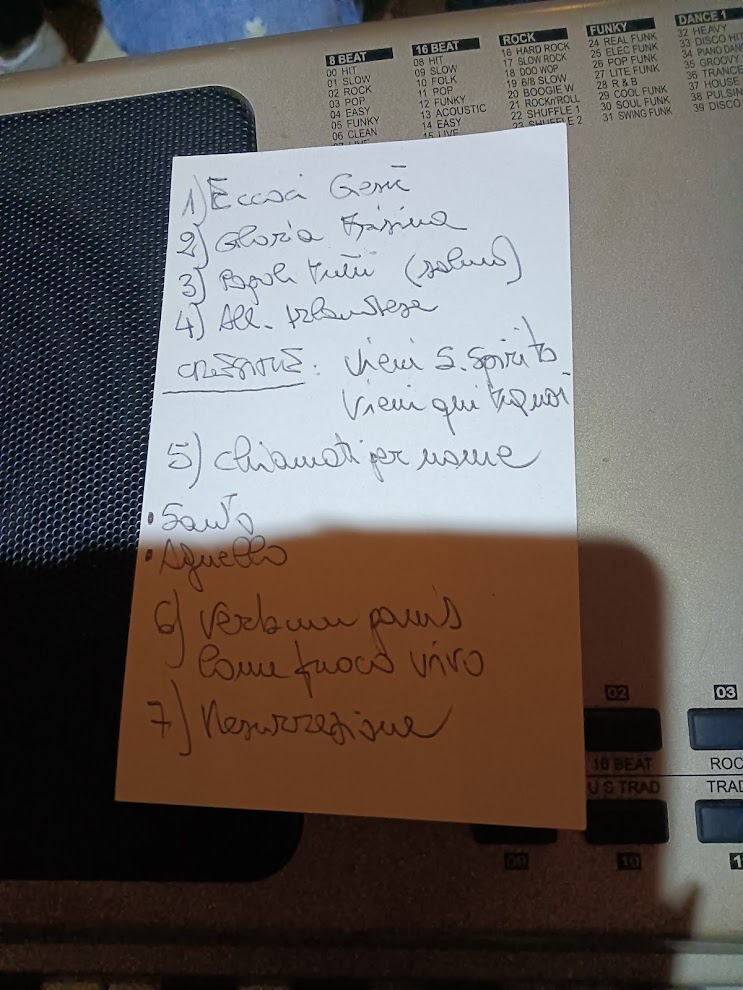 8 BEAT
00 HIT
01 SLOW
02 ROCK
03 POP
04 EASY
05 FUNKY
06 CLEAN
16 BEAT
08 HIT
09 SLOW
10 FOLK
11 POP
12 FUNKY
13 ACOUSTIC
14 EASY
15 LIVE
ROCK
16 HARD ROCK
17 SLOW ROCK
18 DOO WOP
19 6/8 SLOW
20 BOOGIE W
21 ROCK'n'ROLL
22 SHUFFLE 1
23 SHUFFLE 2
FUNKY
24 REAL FUNK
25 ELEC FUNK
26 POP FUNK
27 LITE FUNK
28 R & B
29 COOL FUNK
30 SOUL FUNK
31 SWING FUNK
DANCE 1
32 HEAVY
33 DISCO HIT
34 PIANO DAN
35 GROOVY
36 TRANCE
37 HOUSE
38 PULSIN
39 DISCO
1) Eccoci Gesù
2) Gloria Frisina
3) Popoli tutti (salmo)
4) All. Irlandese
CRESIME: Vieni S. Spirito
Vieni qui tra noi
5) Chiamati per nome
• Santo
• Agnello
6) Verbum panis
Come fuoco vivo
7) Resurrezione
02
03
16 BEAT
ROC
U S TRAD
TRAD
09
10
1